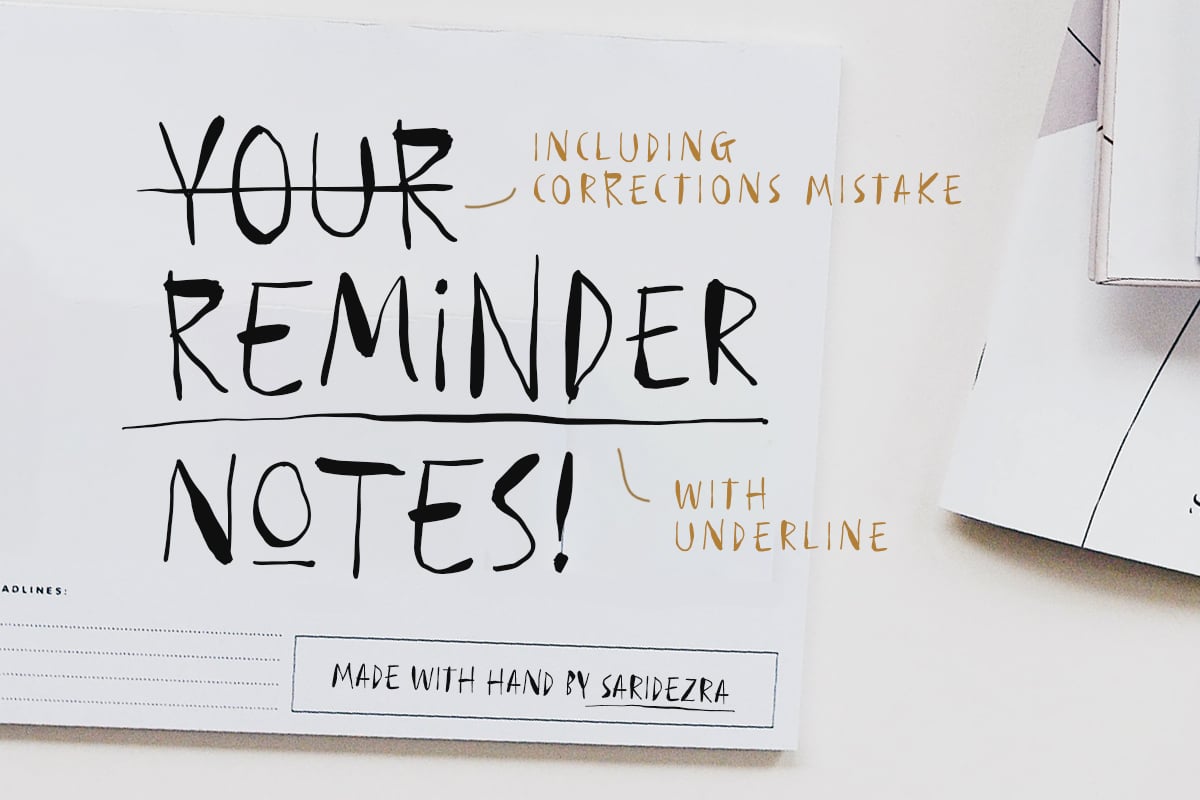 YOUR
INCLUDING
CORRECTIONS MISTAKE
REMINDER
NOTES!
WITH
UNDERLINE
ADLINES:
MADE WITH HAND BY SARIDEZRA